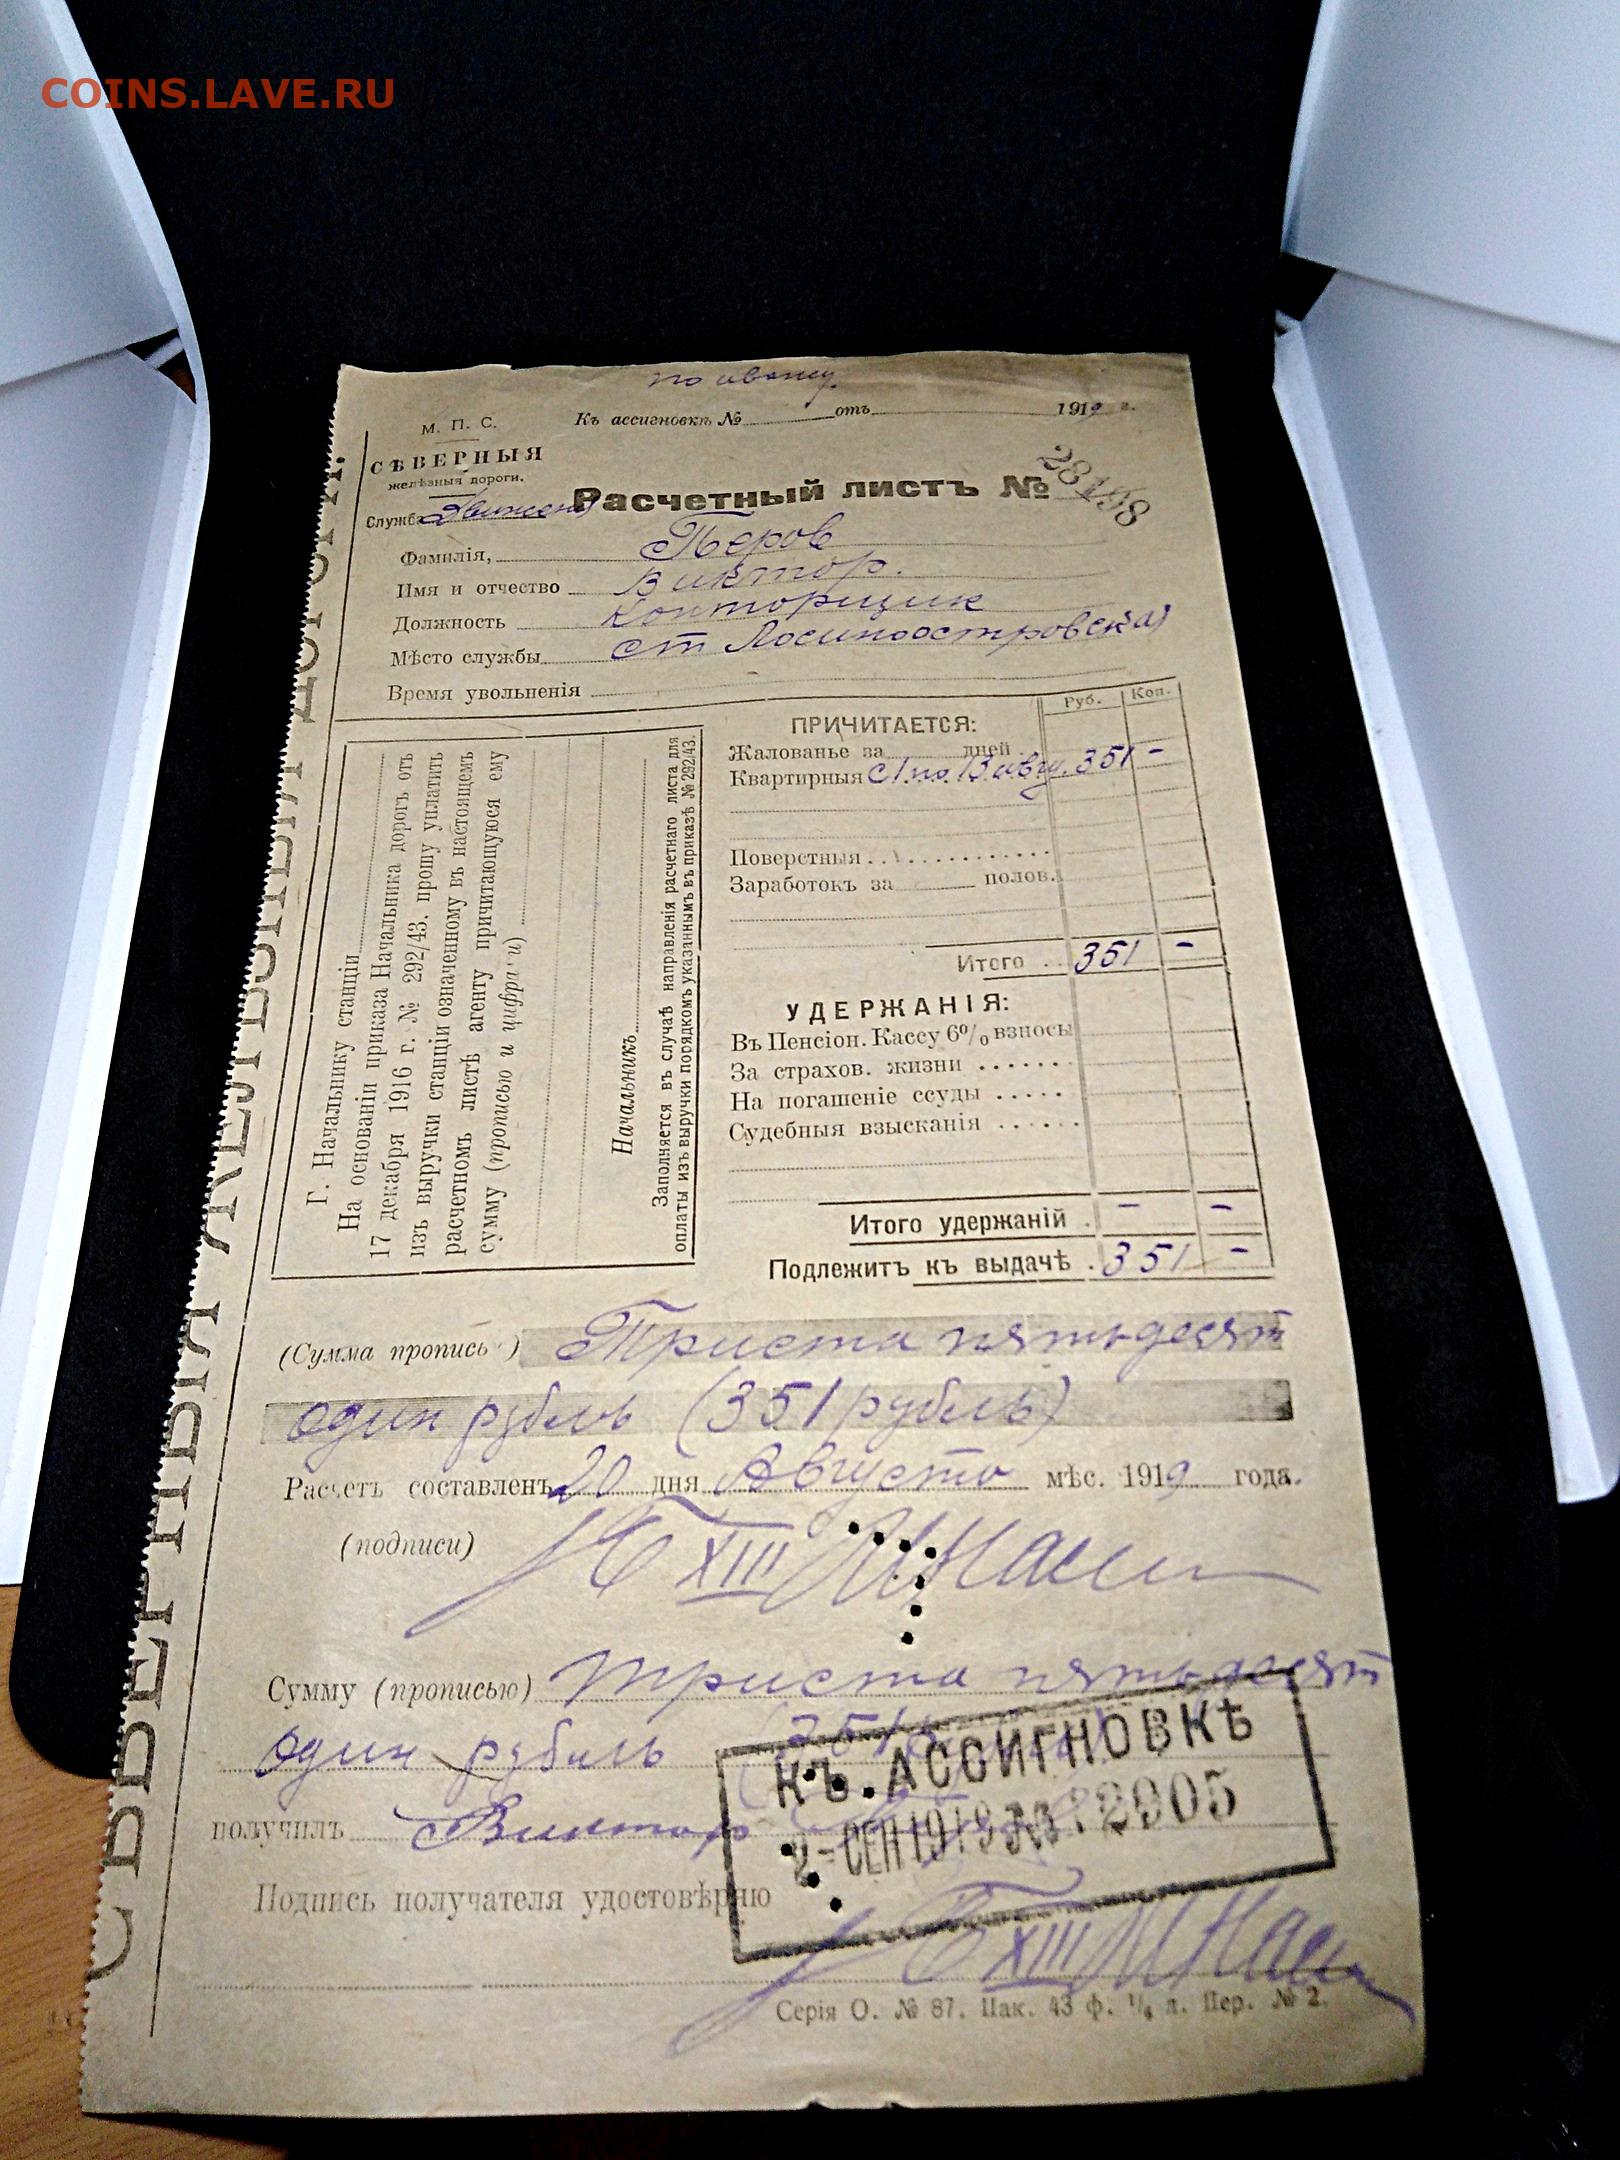 COINS.LAVE.RU
по авансу
Къ ассигновкѣ № отъ 1919 г.
М. П. С.
СѢВЕРНЫЯ
желѣзныя дороги.
Расчетный листъ № 28198
Служба Движения
Фамилія, Перов
Имя и отчество Виктор.
Должность Конторщик
Мѣсто службы ст Лосиноостровская
Время увольненія
Г. Начальнику станціи
На основаніи приказа Начальника дорогъ отъ
17 декабря 1916 г. № 292/43. прошу уплатить
изъ выручки станціи означенному въ настоящемъ
расчетномъ листѣ агенту причитающуюся ему
сумму (прописью и цифрами)
Начальникъ
Заполняется въ случаѣ направленія расчетнаго листа для
оплаты изъ выручки порядкомъ указаннымъ въ приказѣ № 292/43.
Руб. Коп.
ПРИЧИТАЕТСЯ:
Жалованье за дней
Квартирныя с 1 по 13 авгу. 351 -
Поверстныя
Заработокъ за полов.
Итого 351 -
УДЕРЖАНІЯ:
Въ Пенсіон. Кассу 6% взносы
За страхов. жизни
На погашеніе ссуды
Судебныя взысканія
Итого удержаній - -
Подлежитъ къ выдачѣ 351 -
(Сумма прописью) Триста пятьдесят
один рубль (351 рубль)
Расчетъ составленъ 20 дня Августа мѣс. 1919 года.
(подписи) XIII
Сумму (прописью) триста пятьдесят
один рубль (351
КЪ АССИГНОВКѢ
2-СЕН 1919 № 12905
получилъ Виктор
Подпись получателя удостовѣряю
XIII
Серія О. № 87. Пак. 43 ф. 1/4 л. Пер. № 2.
СѢВЕРНЫЯ ЖЕЛѢЗНЫЯ ДОРОГИ.